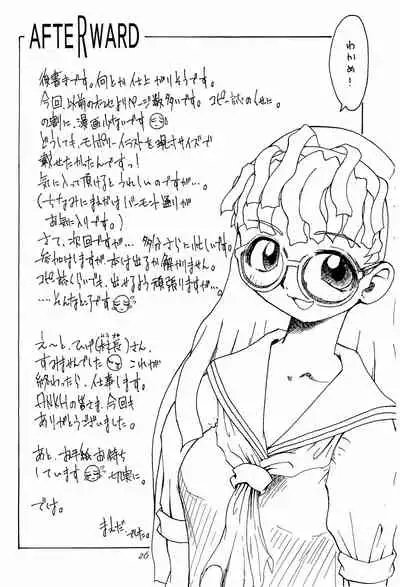 AFTERWARD
わかめ!
後書きです。何とか仕上がりそうです。
今回、以前のなどよりページ数多いです。コピー誌のくせに。
の割に、漫画少ないです
どうしても、モノポリーイラストを現寸サイズで
載せたかったんですっ!
気に入って頂けるとうれしいのですが…。
(ちなみにまえだはバーモント通りが
お気に入りです。)
さて、次回ですが… 多分さらに忙しいです。
申し込みはしますが本は出るか解かりません。
コピー誌くらいでも、出せるよう頑張りますが…。
……そんなところです
え〜と、ひげ(村長)さん、
すみませんでした これが
終わったら、仕事します。
ANKHの皆さま、今回も
ありがとうございました。
あと、お手紙お待ち
しています 切実に。
では。
まえだ でした。
26